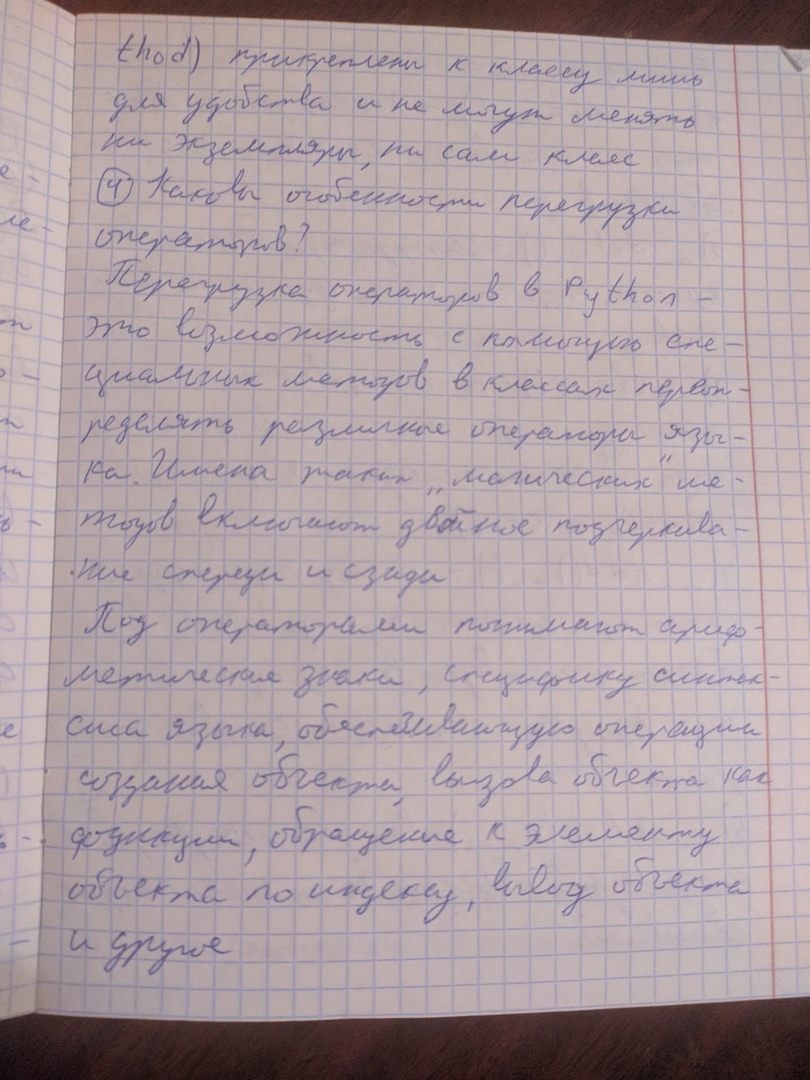 thod) прикреплены к классу лишь
для удобства и не могут менять
ни экземпляры, ни сам класс
④ Каковы особенности перегрузки
операторов?
Перегрузка операторов в Python -
это возможность с помощью спе-
циальных методов в классах переоп-
ределять различные операторы язы-
ка. Имена таких „магических" ме-
тодов включают двойное подчеркива-
ние спереди и сзади
Под операторами понимают ариф-
метические знаки, специфику синтак-
сиса языка, обеспечивающую операции
создания объекта, вызова объекта как
функции, обращение к элементу
объекта по индексу, вывод объекта
и другое
е-
ле-